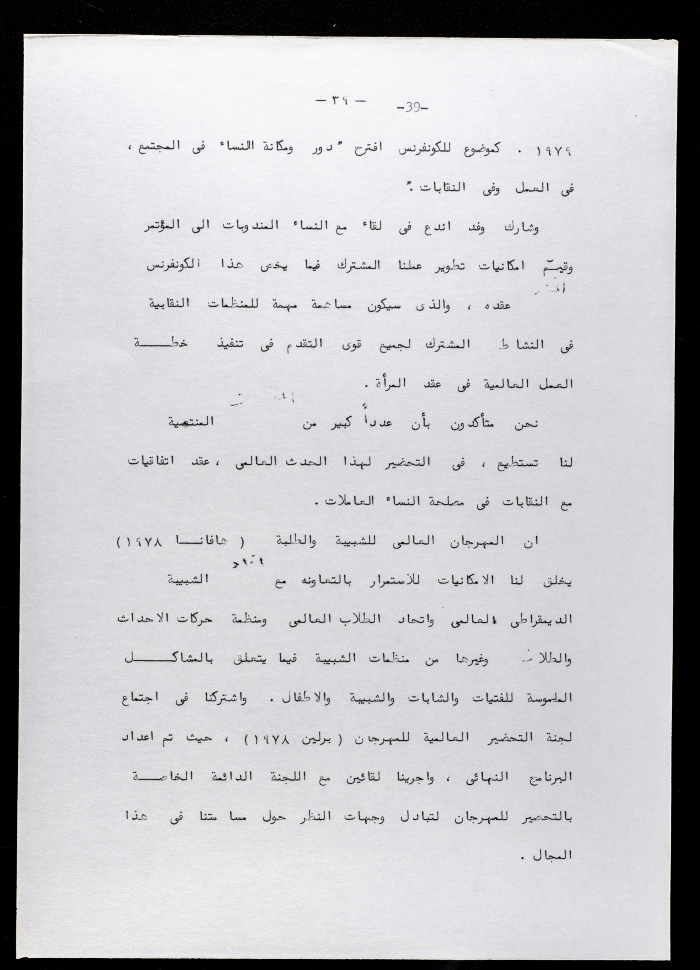 — ٣٩ — -39-
١٩٧٩ . كموضوع للكونفرنس اقترح " دور ومكانة النساء فى المجتمع ،
فى العمل وفى النقابات ."
وشارك وفد اندع فى لقاء مع النساء المندوبات الى المؤتمر
وقيّم امكانيات تطوير عملنا المشترك فيما يخص هذا الكونفرنس
عقده ، والذى سيكون مساهمة مهمة للمنظمات النقابية
فى النشاط المشترك لجميع قوى التقدم فى تنفيذ خطـــة
العمل العالمية فى عقد المرأة .
نحن متأكدون بأن عدداً كبير من المنتصية
لنا تستطيع ، فى التحضير لهذا الحدث العالمى ، عقد اتفاقيات
مع النقابات فى مصلحة النساء العاملات .
ان المهرجان العالمى للشبيبة والطلبة ( هافانـــا ١٩٧٨ )
يخلق لنا الامكانيات للاستمرار بالتعاونه مع اتحاد الشبيبة
الديمقراطى العالمى واتحاد الطلاب العالمى ومنظمة حركات الاحداث
والطلائـ وغيرها من منظمات الشبيبة فيما يتعلق بالمشاكـــــل
الملموسة للفتيات والشابات والشبيبة والاطفال . واشتركنا فى اجتماع
لجنة التحضير العالمية للمهرجان ( برلين ١٩٧٨ ) ، حيث تم اعداد
البرنامج النهائى ، واجرينا لقائين مع اللجنة الدائمة الخاصـــة
بالتحضير للمهرجان لتبادل وجهات النظر حول مسا متنا فى هذا
المجال .